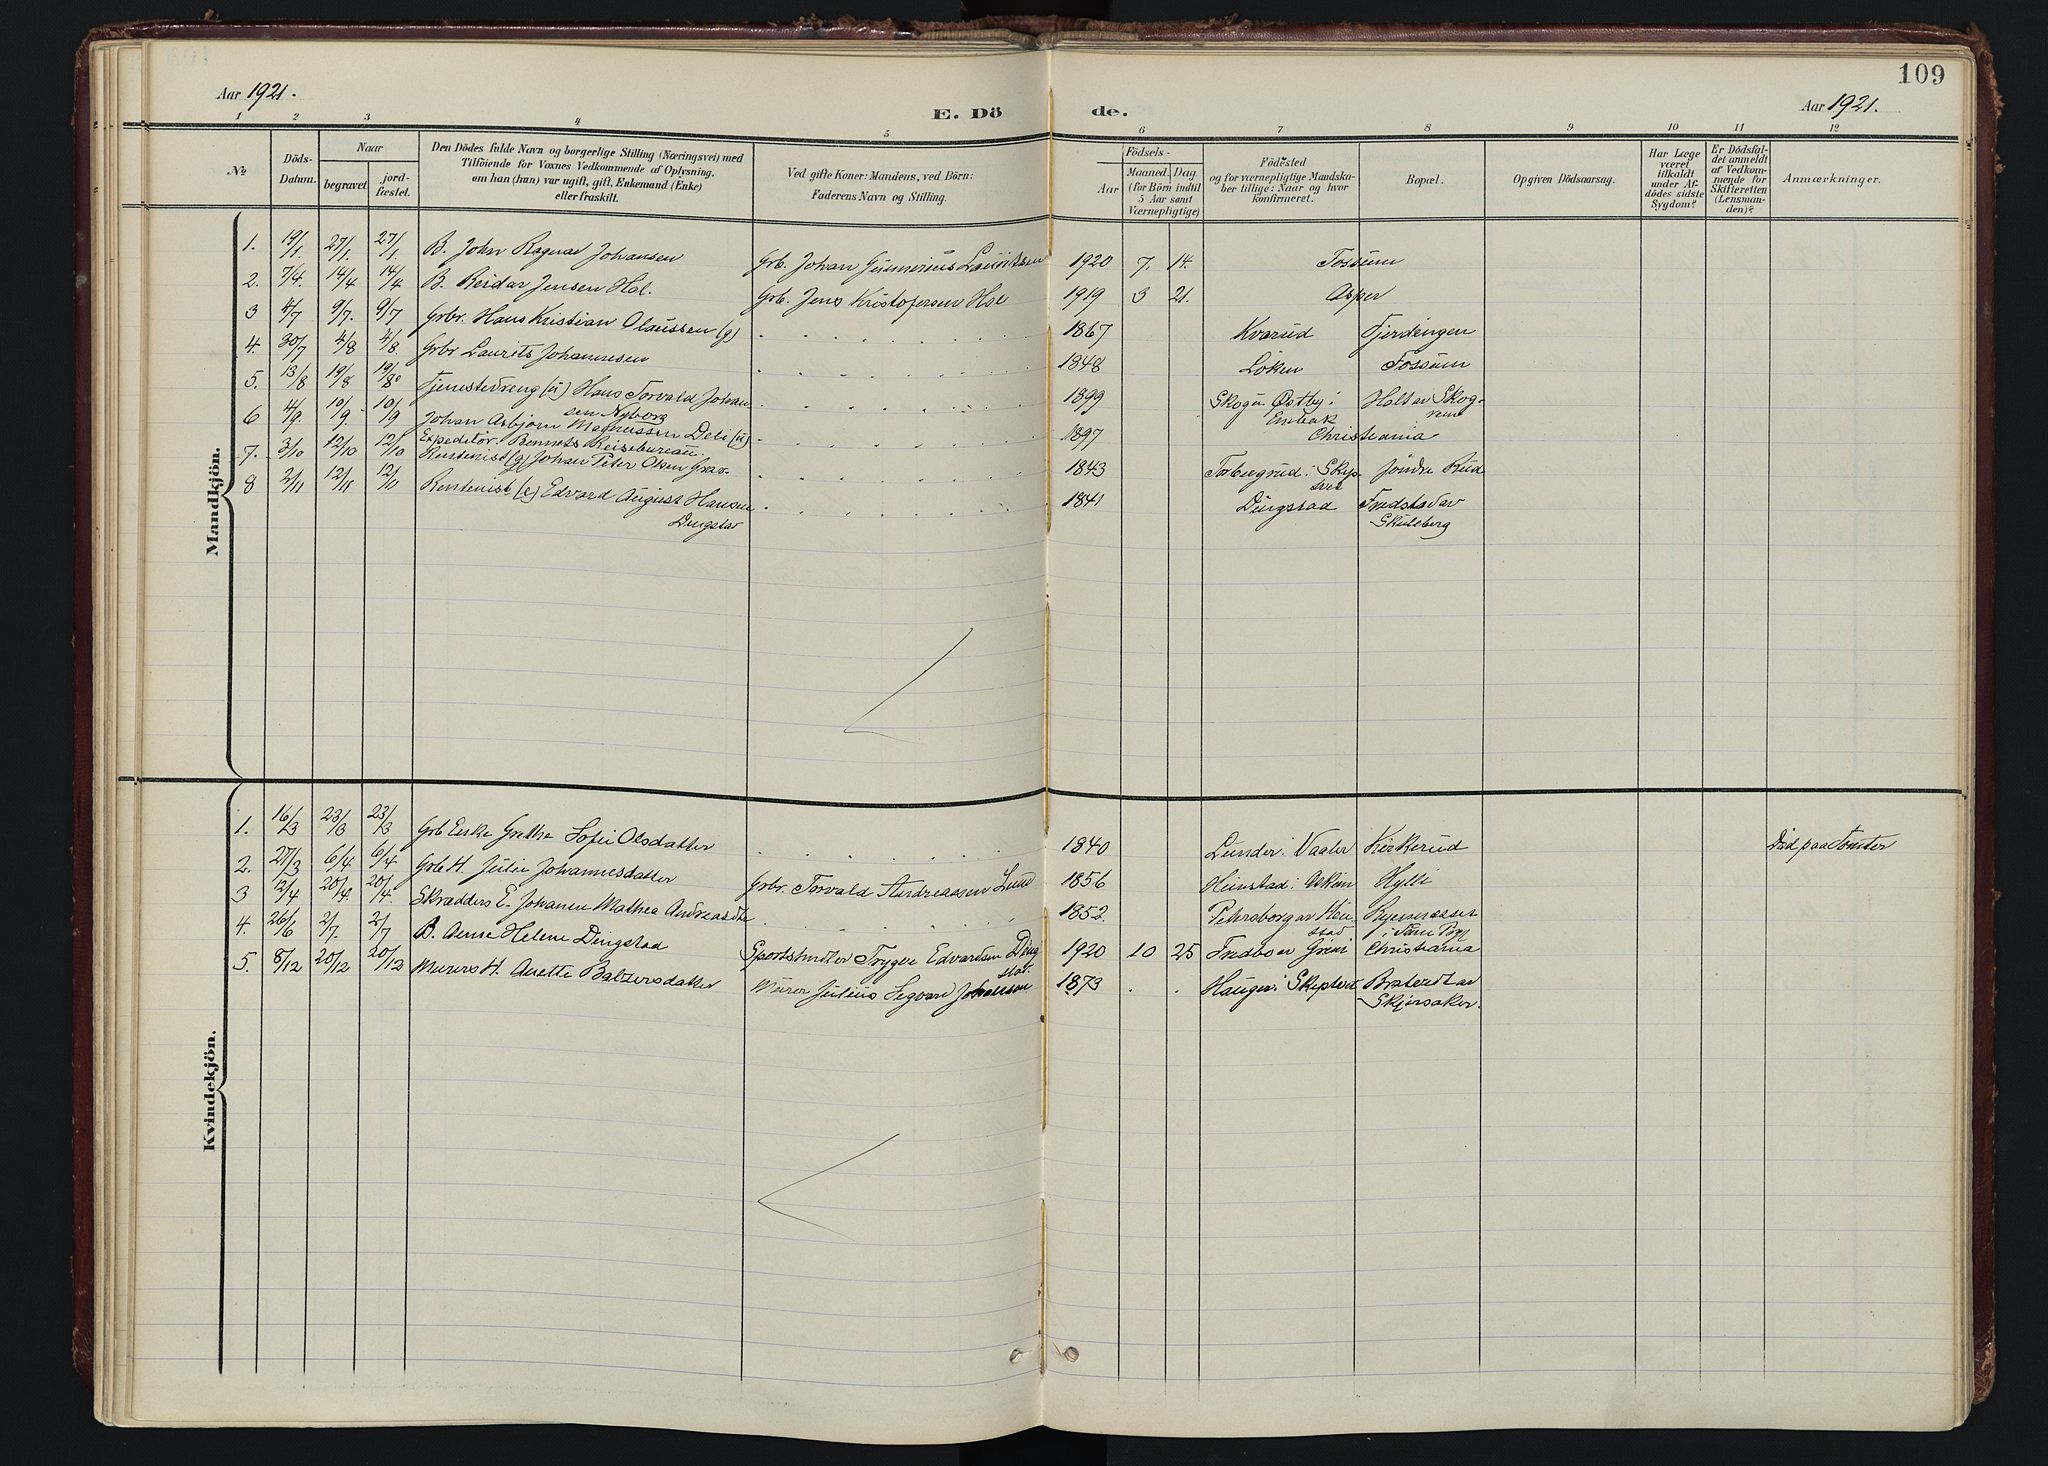 109
Aar 1921.
E. Dö de.
Aar 1921.
1 2 3 4 5 6 7 8 9 10 11 12
No
Döds-Datum.
Naar
begravet
jord-fæstet.
Den Dödes fulde Navn og borgerlige Stilling (Næringsvei) med
Tilföiende for Voxnes Vedkommende af Oplysning,
om han (hun) var ugift, gift, Enkemand (Enke)
eller fraskilt.
Ved gifte Koner: Mandens, ved Börn:
Faderens Navn og Stilling.
Födsels-
Aar
Maaned. Dag.
(for Börn indtil
5 Aar samt
Værnepligtige)
Födested
og for værnepligtige Mandska-
ber tillige: Naar og hvor
konfirmeret.
Bopæl.
Opgiven Dödsaarsag.
Har Læge
været
tilkaldt
under Af-
dödes sidste
Sygdom?
Er Dödsfal-
det anmeldt
af Vedkom-
mende for
Skifteretten
(Lensman-
den)?
Anmærkninger.
Mandkjön.
1. 19/1. 27/1. 27/1. B. John Ragnar Johansen Grb. Johan Gunnerius Lauritsen 1920 7. 14. Fossum
2. 7/4. 14/4 14/4 B. Reidar Jensen Hol. Grb. Jens Kristofersen Hol 1919 3 21. Asper
3 4/7 9/7. 9/7 Grbr. Hans Kristian Olaussen (g) 1867 Kvarud Fjerdingen
4. 30/7 4/8 4/8. Grbr Laurits Johannesen 1848 Löken Fossum
5. 13/8 19/8 19/8. Tjenestedreng (u) Hans Torvald Johan-
sen Nyborg 1899 Skogu. Østby i
Enebak Holt av Skog-
6 4/9. 10/9. 10/9 Johan Asbjørn Magnussen Deli (u)
Expeditör. Bennets Reisebureau. 1897 Christiania
7. 3/10 12/10 12/10 Rentenist (g) Johan Peter Olsen Grav. 1843 Torbergrud i Skip-
tvet Söndre Rud
8 2/11 12/11 12/11 Rentenist (e) Edvard August Hansen
Dingstad 1841 Dingstad Fredstad av
Skuleberg
Kvindekjön.
1. 16/3 23/3 23/3 Grb Enke Grethe Sofie Olsdatter 1840 Lunder i Vaaler Kirkerud Död paa Tomter
2. 27/3 6/4 6/4 Grb H. Julie Johannesdatter Grbr. Torvald Andreassen Lund 1856 Heinstad i Askim Hylli
3 12/4 20/4. 20/4. Skrædders E. Johanne Mathea Andreasdtr 1852. Petersborg av Hein-
stad
4. 26/6 2/7. 2/7 B. Anne Helene Dingstad Sportshndler Trygve Edvardsen Ding-
stad. 1920 10 25 Fredbo av Greni Christiania
5. 8/12 20/12 20/12 Murers H. Anette Baltzersdatter Murer Julius Segvard Johansen 1873 Hauger i Skiptvet Braterdt av
Skjörsaker.